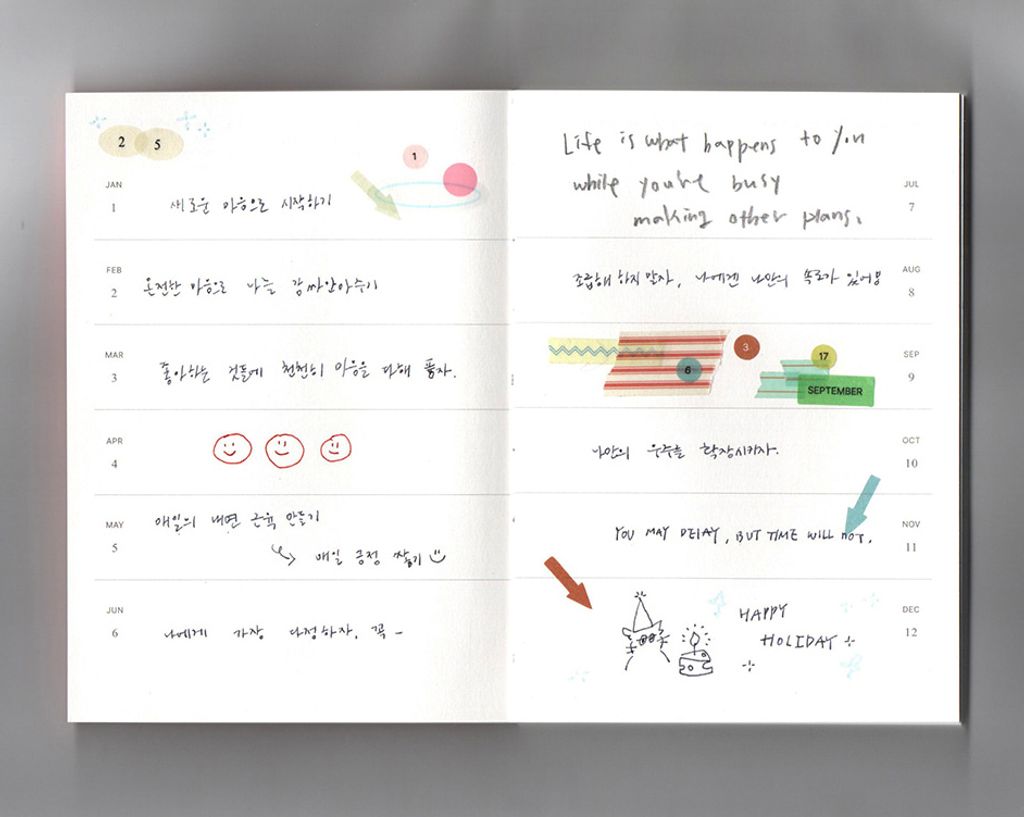 2 5
1
JAN
1
새로운 마음으로 시작하기
FEB
2
온전한 마음으로 나를 감싸안아주기
MAR
3
좋아하는 것들에 천천히 마음을 다해 품자.
APR
4
MAY
5
매일의 내면 근육 만들기
매일 긍정 쌓기
JUN
6
나에게 가장 다정하자. 꼭 –
Life is what happens to you
while you're busy
making other plans.
JUL
7
조급해 하지 말자, 나에겐 나만의 속도가 있어
AUG
8
3
6
17
SEPTEMBER
SEP
9
나만의 우주를 확장시키자.
OCT
10
YOU MAY DELAY, BUT TIME WILL NOT.
NOV
11
HAPPY
HOLIDAY
DEC
12